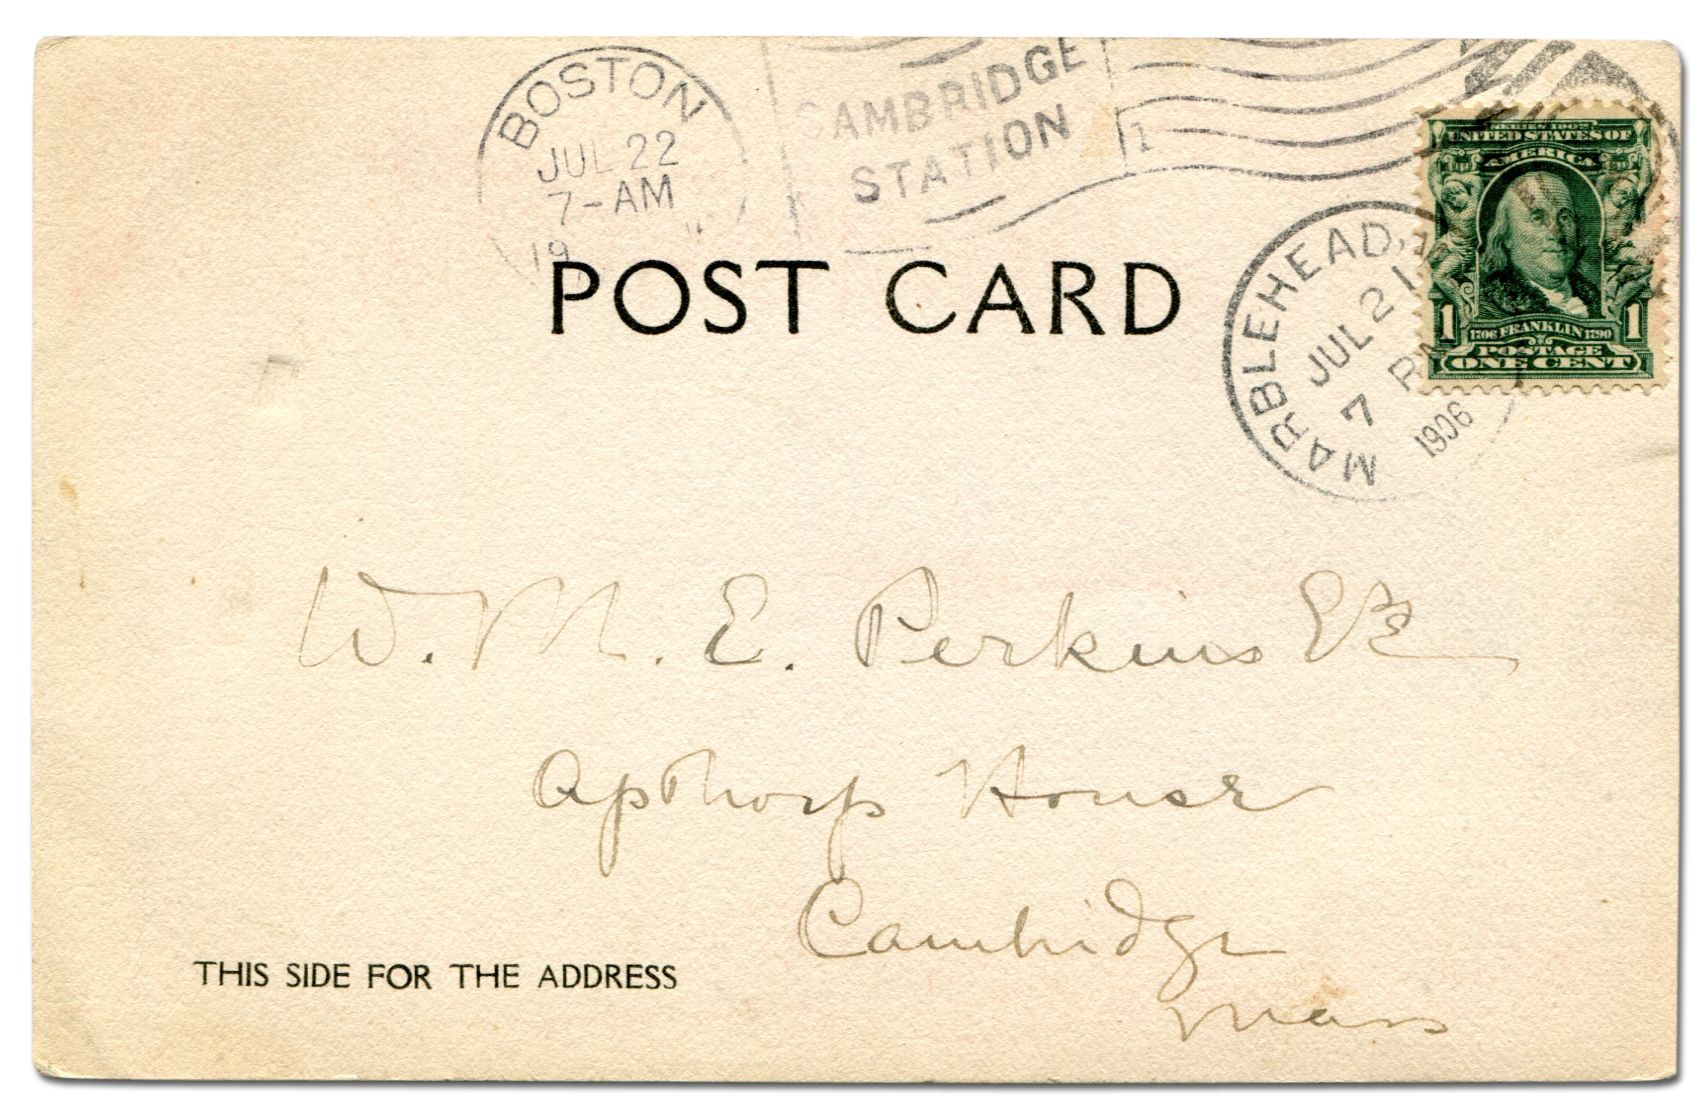 BOSTON
JUL 22
7-AM
19
CAMBRIDGE
STATION
1
POST CARD
MARBLEHEAD,
JUL 21
7 PM
1906
SERIES 1902
UNITED STATES OF
AMERICA
1 1706 FRANKLIN 1790 1
POSTAGE
ONE CENT
W. M. E. Perkins Esq
Apthorp House
Cambridge
Mass
THIS SIDE FOR THE ADDRESS